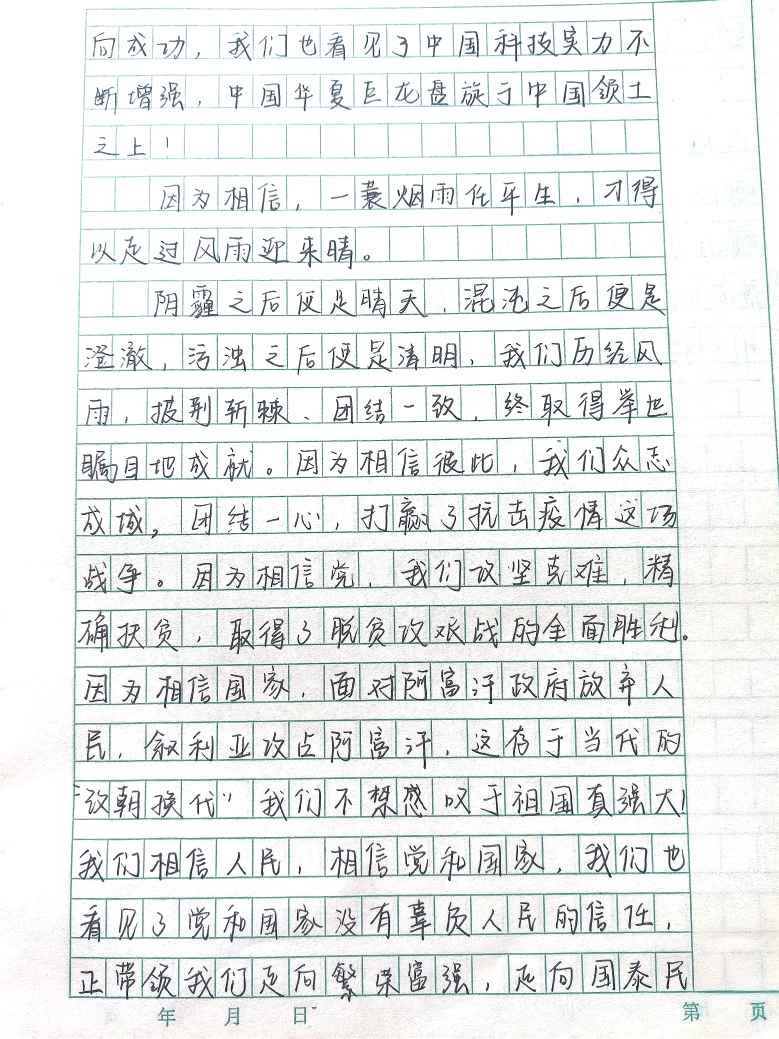 向成功，我们也看见了中国科技实力不
断增强，中国华夏巨龙盘旋于中国领土
之上！
因为相信，一蓑烟雨任平生，才得
以走过风雨迎来晴。
阴霾之后便是晴天，混沌之后便是
澄澈，污浊之后便是清明，我们历经风
雨，披荆斩棘、团结一致，终取得举世
瞩目地成就。因为相信彼此，我们众志
成城，团结一心，打赢了抗击疫情这场
战争。因为相信党，我们攻坚克难，精
确扶贫，取得了脱贫攻艰战的全面胜利。
因为相信国家，面对阿富汗政府放弃人
民，叙利亚攻占阿富汗，这存于当代的
“改朝换代”我们不禁感叹于祖国真强大！
我们相信人民，相信党和国家，我们也
看见了党和国家没有辜负人民的信任，
正带领我们走向繁荣富强，走向国泰民
年 月 日
第 页